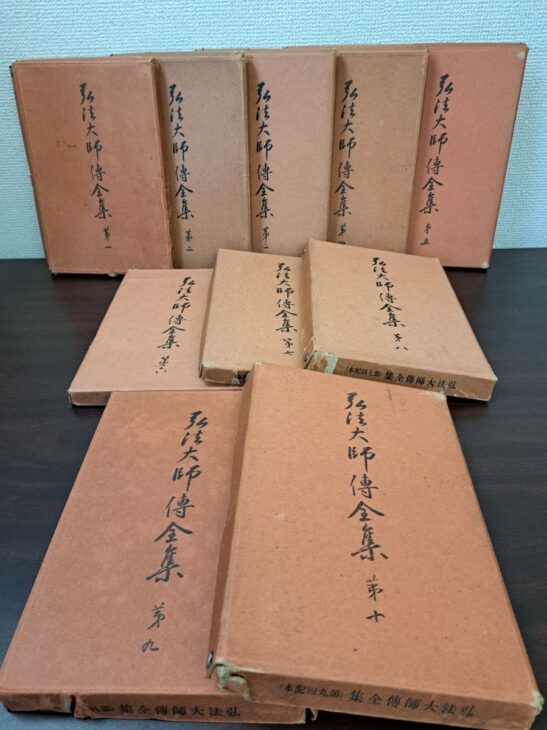 弘法大師傳全集 第一
弘法大師傳全集 第二
弘法大師傳全集 第三
弘法大師傳全集 第四
弘法大師傳全集 第五
弘法大師傳全集 第六
弘法大師傳全集 第七
弘法大師傳全集 第八
弘法大師傳全集（第七回配本）
弘法大師傳全集 第九
弘法大師傳全集
弘法大師傳全集 第十
弘法大師傳全集（第九回配本）